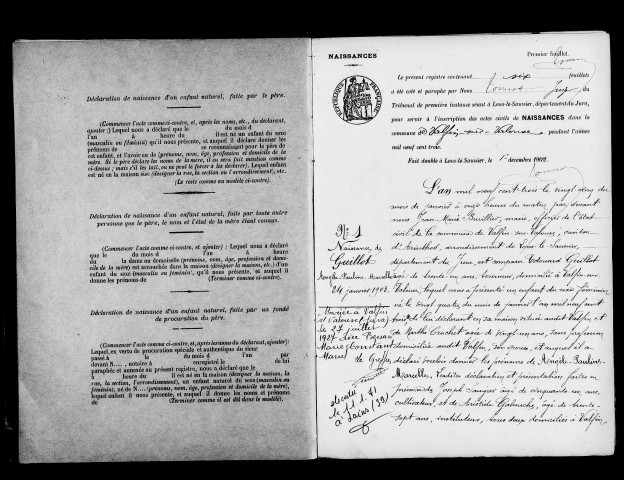 Déclaration de naissance d'un enfant naturel, faite par le père.
(Commencer l'acte comme ci-contre, et, après les noms, etc., du déclarant,
ajouter :) Lequel nous a déclaré que le du mois d
à heure du il est né un enfant du sexe
(masculin ou féminin) qu'il nous présente, et auquel il déclare donner les
prénoms de se reconnaissant pour le père de cet
enfant, et l'avoir eu de (prénoms, nom, âge, profession et domicile de la
mère). Si le père déclare les noms de la mère, il en sera fait mention comme
ci-dessus ; mais s'il les tait, on ne peut le forcer à les déclarer). Lequel enfant
est né en la maison sise (désigner la rue, la section ou l'arrondissement), etc.
(Le reste comme au modèle ci-contre).
Déclaration de naissance d'un enfant naturel, faite par toute autre
personne que le père, le nom et l'état de la mère étant connus.
(Commencer comme ci-contre, et ajouter) : Lequel nous a déclaré
que le du mois d à heure
du la dame ou demoiselle (prénoms, nom, âge, profession et domi-
cile de la mère) est accouchée dans la maison (désigner la maison, etc.) d'un
enfant du sexe (masculin ou féminin), qu'il nous présente, et auquel il
donne les prénoms de (Terminer comme ci-contre).
Déclaration de naissance d'un enfant naturel, faite par un fondé
de procuration du père.
Lequel, en vertu de procuration spéciale et authentique du sieur
passée à le du mois d l'an par
devant N..., notaire à enregistré le de lui
paraphée et annexée au présent registre, nous a déclaré que le
à heure du il est né en la maison (désigner la maison, la
rue, la section, l'arrondissement), un enfant du sexe (masculin ou
féminin), né de N... (prénoms, nom, âge, profession et domicile de la mère),
qu'il nous présente, et auquel il nous déclare donner les noms et prénoms
de (Terminer comme il est dit dans le modèle).
NAISSANCES
Premier feuillet.
RÉPUBLIQUE FRANÇAISE
Le présent registre contenant six feuillets
a été coté et paraphé par Nous Juge du
Tribunal de première instance séant à Lons-le-Saunier, département du Jura,
pour servir à l'inscription des actes civils de NAISSANCES dans la
commune de Valfin-sur-Valouse pendant l'année
mil neuf cent trois.
Fait double à Lons-le-Saunier, le 1er décembre 1902.
N° 1
Naissance de
Guillot
Angèle-Pauline-Marcelle
24 janvier 1903.
L'an mil neuf cent trois le vingt cinq du
mois de janvier à onze heures du matin, par devant
nous Jean Marie Buillier, maire, officier de l'état
civil de la commune de Valfin sur Valouse, canton
d'Arinthod, arrondissement de Lons-le-Saunier,
département du Jura, est comparu Edouard Guillot
âgé de trente un ans, tourneur, domicilié à Valfin sur
Valouse, lequel nous a présenté un enfant du sexe féminin
né le vingt quatre du mois de janvier an mil neuf cent
trois de lui déclarant en sa maison située audit Valfin, et
de Marthe Cruchet âgée de vingt un ans, sans profession
domiciliée audit Valfin, son épouse, et auquel il a
déclaré vouloir donner les prénoms de Angèle-Pauline-
Marcelle. Lesdites déclaration et présentation faites en
présence de Joseph âgé de cinquante un ans,
cultivateur, et de Aristide Gabauche, âgé de trente-
sept ans, instituteur, tous deux domiciliés à Valfin,
Mariée à Valfin
s/Valouse (Jura)
le 27 juillet
1927 avec
Marie Constant
Marcel
décédée
à